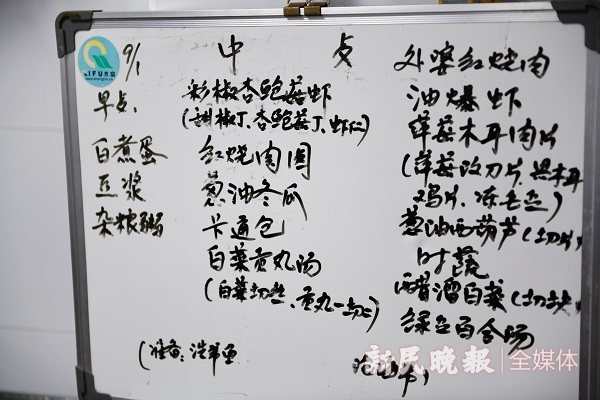 iFU齐富
9/1
中 点
早点:
白煮蛋
豆浆
杂粮粥
彩椒杏鲍菇虾
(甜椒丁、杏鲍菇丁、虾仁)
红烧肉圆
葱油冬瓜
卡通包
白菜贡丸汤
(白菜切丝、贡丸一切二)
外婆红烧肉
油爆虾
荸荠木耳肉片
(荸荠改刀片、黑木耳
鸡片、
葱油西葫芦(切片)
时蔬
醋溜白菜(切块)
绿豆百合汤
(准备:
新民晚报|全媒体